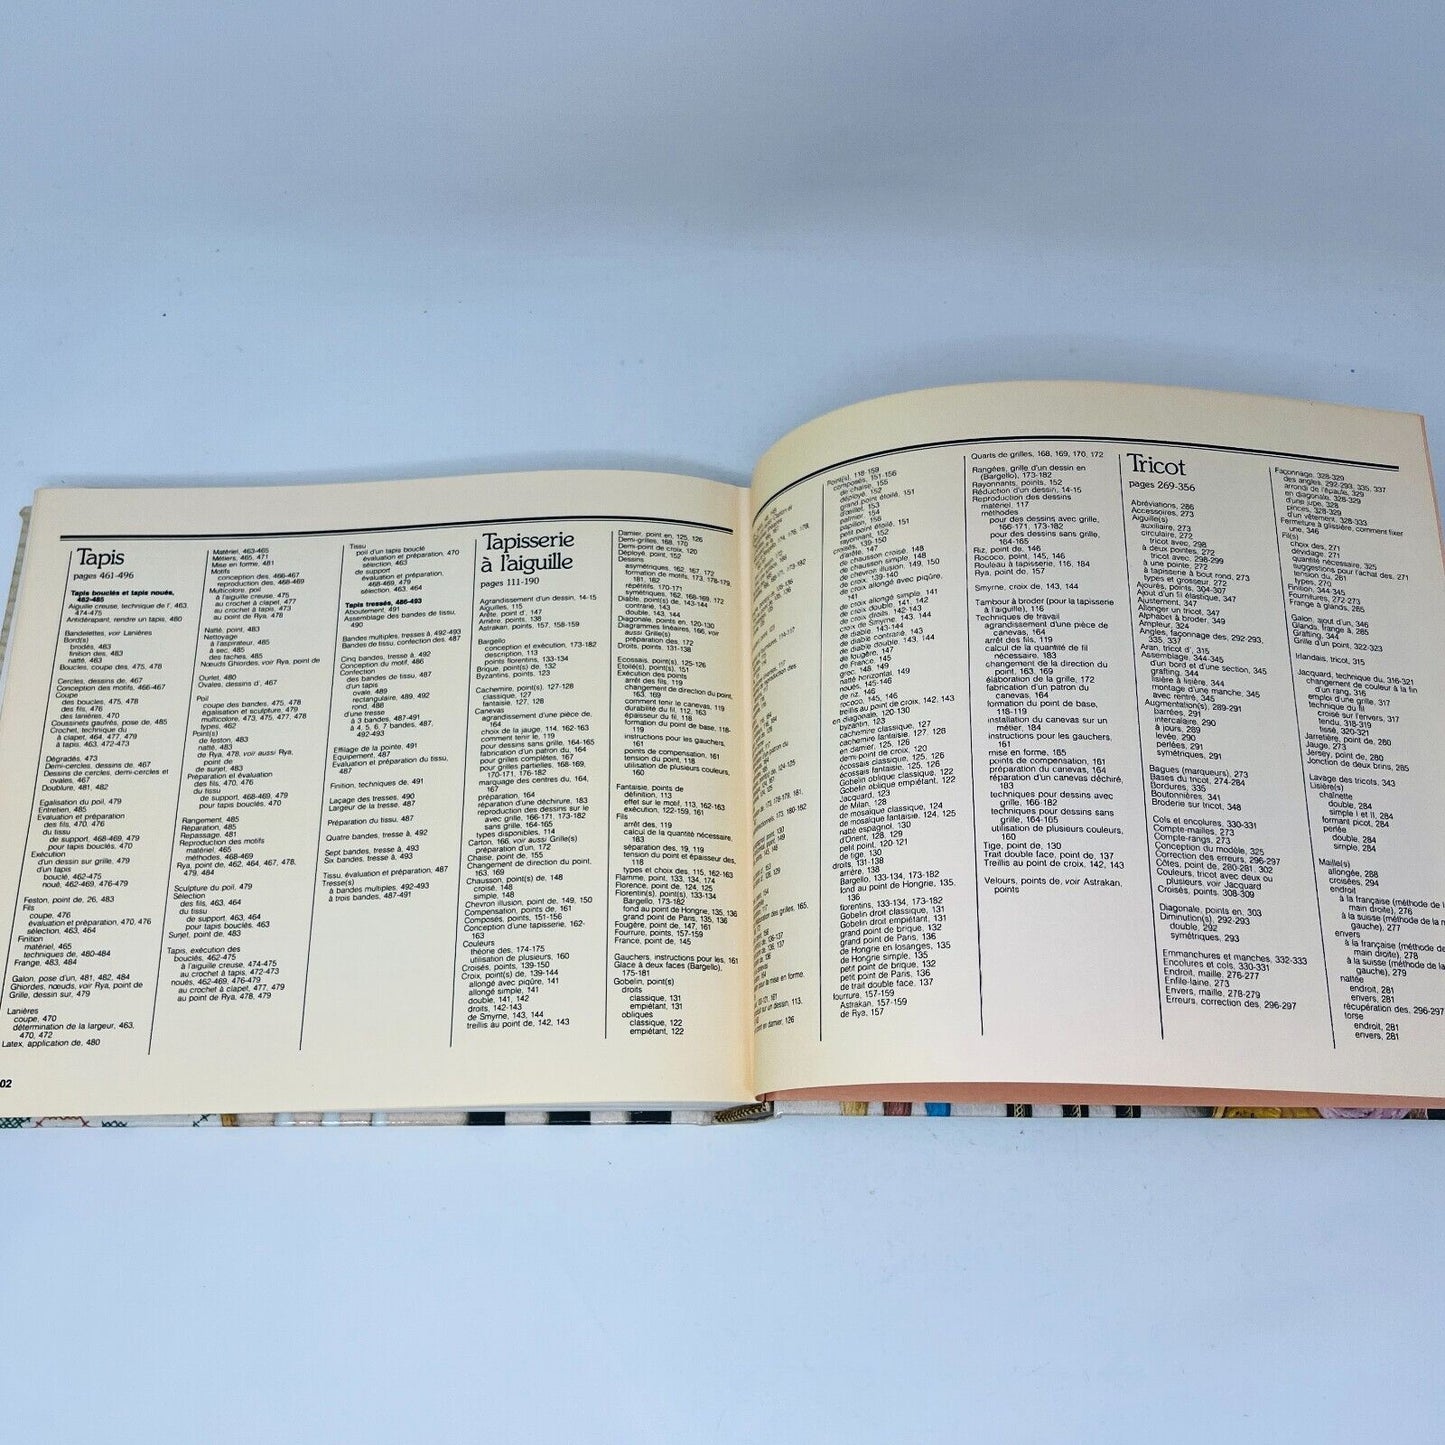 Tapis
pages 461-496
Tapis bouclés et tapis noués,
462-485
Aiguille creuse, technique de l', 463,
474-475
Antidérapant, rendre un tapis, 480
Bandelettes, voir Lanières
Bord(s)
brodés, 483
finition des, 483
natté, 463
Boucles, coupe des, 475, 478
Cercles, dessins de, 467
Conception des motifs, 466-467
Coupe
des boucles, 475, 478
des fils, 476
des lanières, 470
Coussinets gaufrés, pose de, 485
Crochet, technique du
à clapet, 464, 477, 479
à tapis, 463, 472-473
Dégradés, 473
Demi-cercles, dessins de, 467
Dessins de cercles, demi-cercles et
ovales, 467
Doublure, 481, 482
Egalisation du poil, 479
Entretien, 485
Evaluation et préparation
des fils, 470, 476
du tissu
de support, 468-469, 479
pour tapis bouclé, 470
Exécution
d'un dessin sur grille, 479
d'un tapis
bouclé, 462-475
noué, 462, 476-479
Feston, point de, 26, 483
Fils
coupe, 476
évaluation et préparation, 470, 476
sélection, 463, 464
Finition
matériel, 465
techniques de, 480-484
Frange, 483, 484
Galon, pose d'un, 481, 482, 484
Ghiordes, nœuds, voir Rya, point de
Grille, dessin sur, 479
Lanières
coupe, 470
détermination de la largeur, 463,
470, 472
Latex, application de, 480
02
Matériel, 463-465
Métiers, 465, 471
Mise en forme, 481
Motifs
conception des, 466-467
reproduction des, 468-469
Multicolore, poil
à l'aiguille creuse, 475
au crochet à clapet, 477
au crochet à tapis, 473
au point de Rya, 478
Natté, point, 483
Nettoyage
à l'aspirateur, 485
à sec, 485
des taches, 485
Nœuds Ghiordes, voir Rya, point de
Ourlet, 480
Ovales, dessins d', 467
Poil
coupe des bandes, 475, 478
égalisation et sculpture, 479
multicolore, 473, 475, 477, 478
types, 462
Point(s)
de feston, 483
natté, 483
de Rya, 478, voir aussi Rya,
point de
de surjet, 483
Préparation et évaluation
des fils, 470, 476
du tissu
de support, 468-469, 479
pour tapis bouclés, 470
Rangement, 485
Réparation, 485
Repassage, 481
Reproduction des motifs
matériel, 465
méthodes, 468-469
Rya, point de, 462, 464, 467, 478,
479, 484
Sculpture du poil, 479
Sélection
des fils, 463, 464
du tissu
de support, 463, 464
pour tapis bouclés, 463
Surjet, point de, 483
Tapis, exécution des
bouclés, 462-475
à l'aiguille creuse, 474-475
au crochet à tapis, 472-473
noués, 462, 476-479
au crochet à clapet, 477, 479
au point de Rya, 478, 479
Tissu
poil d'un tapis bouclé
évaluation et préparation, 470
sélection, 463
de support
évaluation et préparation,
468-469, 479
sélection, 463, 464
Tapis tressés, 486-493
Aboutement, 491
Assemblage des bandes de tissu,
490
Bandes multiples, tresses à, 492-493
Bandes de tissu, confection des, 487
Cinq bandes, tresse à, 492
Conception du motif, 486
Confection
des bandes de tissu, 487
d'un tapis
ovale, 489
rectangulaire, 489, 492
rond, 488
d'une tresse
à 3 bandes, 487-491
à 4, 5, 6, 7 bandes, 487,
492-493
Effilage de la pointe, 491
Equipement, 487
Evaluation et préparation du tissu,
487
Finition, techniques de, 491
Laçage des tresses, 490
Largeur de la tresse, 487
Préparation du tissu, 487
Quatre bandes, tresse à, 492
Sept bandes, tresse à, 493
Six bandes, tresse à, 493
Tissu, évaluation et préparation, 487
Tresse(s)
à bandes multiples, 492-493
à trois bandes, 487-491
Tapisserie
à l'aiguille
pages 111-190
Agrandissement d'un dessin, 14-15
Aiguilles, 115
Arête, point d', 147
Arrière, points, 138
Astrakan, points, 157, 158-159
Bargello
conception et exécution, 173-182
description, 113
points florentins, 133-134
Brique, point(s) de, 132
Byzantin, points, 123
Cachemire, point(s), 127-128
classique, 127
fantaisie, 127, 128
Canevas
agrandissement d'une pièce de,
164
choix de la jauge, 114, 162-163
comment tenir le, 119
pour dessins sans grille, 164-165
fabrication d'un patron du, 164
pour grilles complètes, 167
pour grilles partielles, 168-169,
170-171, 176-182
marquage des centres du, 164,
167
préparation, 164
réparation d'une déchirure, 183
reproduction des dessins sur le
avec grille, 166-171, 173-182
sans grille, 164-165
types disponibles, 114
Carton, 166, voir aussi Grille(s)
préparation d'un, 172
Chaise, point de, 155
Changement de direction du point,
163, 169
Chausson, point(s) de, 148
croisé, 148
simple, 148
Chevron illusion, point de, 149, 150
Compensation, points de, 161
Composés, points, 151-156
Conception d'une tapisserie, 162-
163
Couleurs
théorie des, 174-175
utilisation de plusieurs, 160
Croisés, points, 139-150
Croix, point(s) de, 139-144
allongé avec piqûre, 141
allongé simple, 141
double, 141, 142
droits, 142-143
de Smyrne, 143, 144
treillis au point de, 142, 143
Damier, point en, 125, 126
Demi-grilles, 168, 170
Demi-point de croix, 120
Déployé, point, 152
Dessins
asymétriques, 162, 167, 172
formation de motifs, 173, 178-179,
181, 182
répétitifs, 170-171
symétriques, 162, 168-169, 172
Diable, point(s) de, 143-144
contrarié, 143
double, 143, 144
Diagonale, points en, 120-130
Diagrammes linéaires, 166, voir
aussi Grille(s)
préparation des, 172
Droits, points, 131-138
Ecossais, point(s), 125-126
Etoilé(s), point(s), 151
Exécution des points
arrêt des fils, 119
changement de direction du point,
163, 169
comment tenir le canevas, 119
durabilité du fil, 112, 163
épaisseur du fil, 118
formation du point de base, 118-
119
instructions pour les gauchers,
161
points de compensation, 161
tension du point, 118
utilisation de plusieurs couleurs,
160
Fantaisie, points de
définition, 113
effet sur le motif, 113, 162-163
exécution, 122-159, 161
Fils
arrêt des, 119
calcul de la quantité nécessaire,
183
séparation des, 19, 119
tension du point et épaisseur des,
118
types et choix des, 115, 162-163
Flamme, point, 133, 134, 174
Florence, point de, 124, 125
Florentin(s), point(s), 133-134
Bargello, 173-182
fond au point de Hongrie, 135, 136
grand point de Paris, 135, 136
Fougère, point de, 147, 161
Fourrure, points, 157-159
France, point de, 145
Gauchers, instructions pour les, 161
Glace à deux faces (Bargello),
175-181
Gobelin, point(s)
droits
classique, 131
empiétant, 131
obliques
classique, 122
empiétant, 122
Point(s), 118-159
composés, 151-156
de chaise, 155
déployé, 152
grand point étoilé, 151
d'œillet, 153
palmier, 154
papillon, 156
petit point étoilé, 151
rayonnant, 152
croisés, 139-150
d'arête, 147
de chausson croisé, 148
de chausson simple, 148
de chevron illusion, 149, 150
de croix, 139-140
de croix allongé avec piqûre,
141
de croix allongé simple, 141
de croix double, 141, 142
de croix droits, 142-143
de croix de Smyrne, 143, 144
de diable, 143-144
de diable contrarié, 143
de diable double, 143, 144
de fougère, 147
de France, 145
grec, 148, 149
natté horizontal, 149
noués, 145-146
de riz, 146
rococo, 145, 146
treillis au point de croix, 142, 143
en diagonale, 120-130
byzantin, 123
cachemire classique, 127
cachemire fantaisie, 127, 128
en damier, 125, 126
demi-point de croix, 120
écossais classique, 125, 126
écossais fantaisie, 125, 126
Gobelin oblique classique, 122
Gobelin oblique empiétant, 122
Jacquard, 123
de Milan, 128
de mosaïque classique, 124
de mosaïque fantaisie, 124, 125
natté espagnol, 130
d'Orient, 128, 129
petit point, 120-121
de tige, 130
droits, 131-138
arrière, 138
Bargello, 133-134, 173-182
fond au point de Hongrie, 135,
136
florentins, 133-134, 173-182
Gobelin droit classique, 131
Gobelin droit empiétant, 131
grand point de brique, 132
grand point de Paris, 136
de Hongrie en losanges, 135
de Hongrie simple, 135
petit point de brique, 132
petit point de Paris, 136
de trait double face, 137
fourrure, 157-159
Astrakan, 157-159
de Rya, 157
Quarts de grilles, 168, 169, 170, 172
Rangées, grille d'un dessin en
(Bargello), 173-182
Rayonnants, points, 152
Réduction d'un dessin, 14-15
Reproduction des dessins
matériel, 117
méthodes
pour des dessins avec grille,
166-171, 173-182
pour des dessins sans grille,
164-165
Riz, point de, 146
Rococo, point, 145, 146
Rouleau à tapisserie, 116, 184
Rya, point de, 157
Smyrne, croix de, 143, 144
Tambour à broder (pour la tapisserie
à l'aiguille), 116
Techniques de travail
agrandissement d'une pièce de
canevas, 164
arrêt des fils, 119
calcul de la quantité de fil
nécessaire, 183
changement de la direction du
point, 163, 169
élaboration de la grille, 172
fabrication d'un patron du
canevas, 164
formation du point de base,
118-119
installation du canevas sur un
métier, 184
instructions pour les gauchers,
161
mise en forme, 185
points de compensation, 161
préparation du canevas, 164
réparation d'un canevas déchiré,
183
techniques pour dessins avec
grille, 166-182
techniques pour dessins sans
grille, 164-165
utilisation de plusieurs couleurs,
160
Tige, point de, 130
Trait double face, point de, 137
Treillis au point de croix, 142, 143
Velours, points de, voir Astrakan,
points
Tricot
pages 269-356
Abréviations, 286
Accessoires, 273
Aiguille(s)
auxiliaire, 273
circulaire, 272
tricot avec, 298
à deux pointes, 272
tricot avec, 298-299
à une pointe, 272
à tapisserie à bout rond, 273
types et grosseur, 272
Ajourés, points, 304-307
Ajout d'un fil élastique, 347
Ajustement, 347
Allonger un tricot, 347
Alphabet à broder, 349
Ampleur, 324
Angles, façonnage des, 292-293,
335, 337
Aran, tricot d', 315
Assemblage, 344-345
d'un bord et d'une section, 345
grafting, 344
lisière à lisière, 344
montage d'une manche, 345
avec rentré, 345
Augmentation(s), 289-291
barrées, 291
intercalaire, 290
à jours, 289
levée, 290
perlées, 291
symétriques, 291
Bagues (marqueurs), 273
Bases du tricot, 274-284
Bordures, 335
Boutonnières, 341
Broderie sur tricot, 348
Cols et encolures, 330-331
Compte-mailles, 273
Compte-rangs, 273
Conception du modèle, 325
Correction des erreurs, 296-297
Côtes, point de, 280-281, 302
Couleurs, tricot avec deux ou
plusieurs, voir Jacquard
Croisés, points, 308-309
Diagonale, points en, 303
Diminution(s), 292-293
double, 292
symétriques, 293
Emmanchures et manches, 332-333
Encolures et cols, 330-331
Endroit, maille, 276-277
Enfile-laine, 273
Envers, maille, 278-279
Erreurs, correction des, 296-297
Façonnage, 328-329
des angles, 292-293, 335, 337
arrondi de l'épaule, 329
en diagonale, 328-329
d'une jupe, 328
pinces, 328-329
d'un vêtement, 328-333
Fermeture à glissière, comment fixer
une, 346
Fil(s)
choix des, 271
dévidage, 271
quantité nécessaire, 325
suggestions pour l'achat des, 271
tension du, 281
types, 270
Finition, 344-345
Fournitures, 272-273
Frange à glands, 285
Galon, ajout d'un, 346
Glands, frange à, 285
Grafting, 344
Grille d'un point, 322-323
Irlandais, tricot, 315
Jacquard, technique du, 316-321
changement de couleur à la fin
d'un rang, 316
emploi d'une grille, 317
technique du fil
croisé sur l'envers, 317
tendu, 318-319
tissé, 320-321
Jarretière, point de, 280
Jauge, 273
Jersey, point de, 280
Jonction de deux brins, 285
Lavage des tricots, 343
Lisière(s)
chaînette
double, 284
simple I et II, 284
formant picot, 284
perlée
double, 284
simple, 284
Maille(s)
allongée, 288
croisées, 294
endroit
à la française (méthode de l
main droite), 276
à la suisse (méthode de la m
gauche), 277
envers
à la française (méthode de
main droite), 278
à la suisse (méthode de la
gauche), 279
nattée
endroit, 281
envers, 281
récupération des, 296-297
torse
endroit, 281
envers, 281